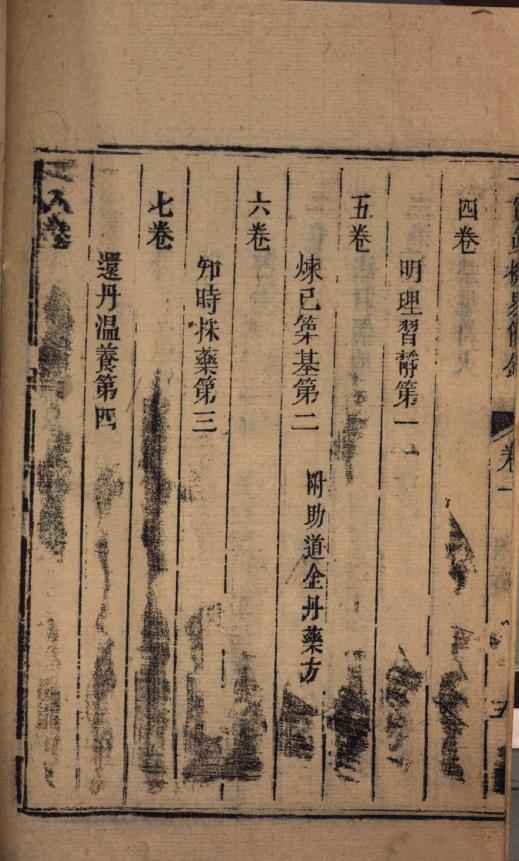 四卷
明理習靜第一
五卷
煉己築基第二 附助道金丹藥方
六卷
知時採藥第三
七卷
還丹溫養第四
八卷
卷一